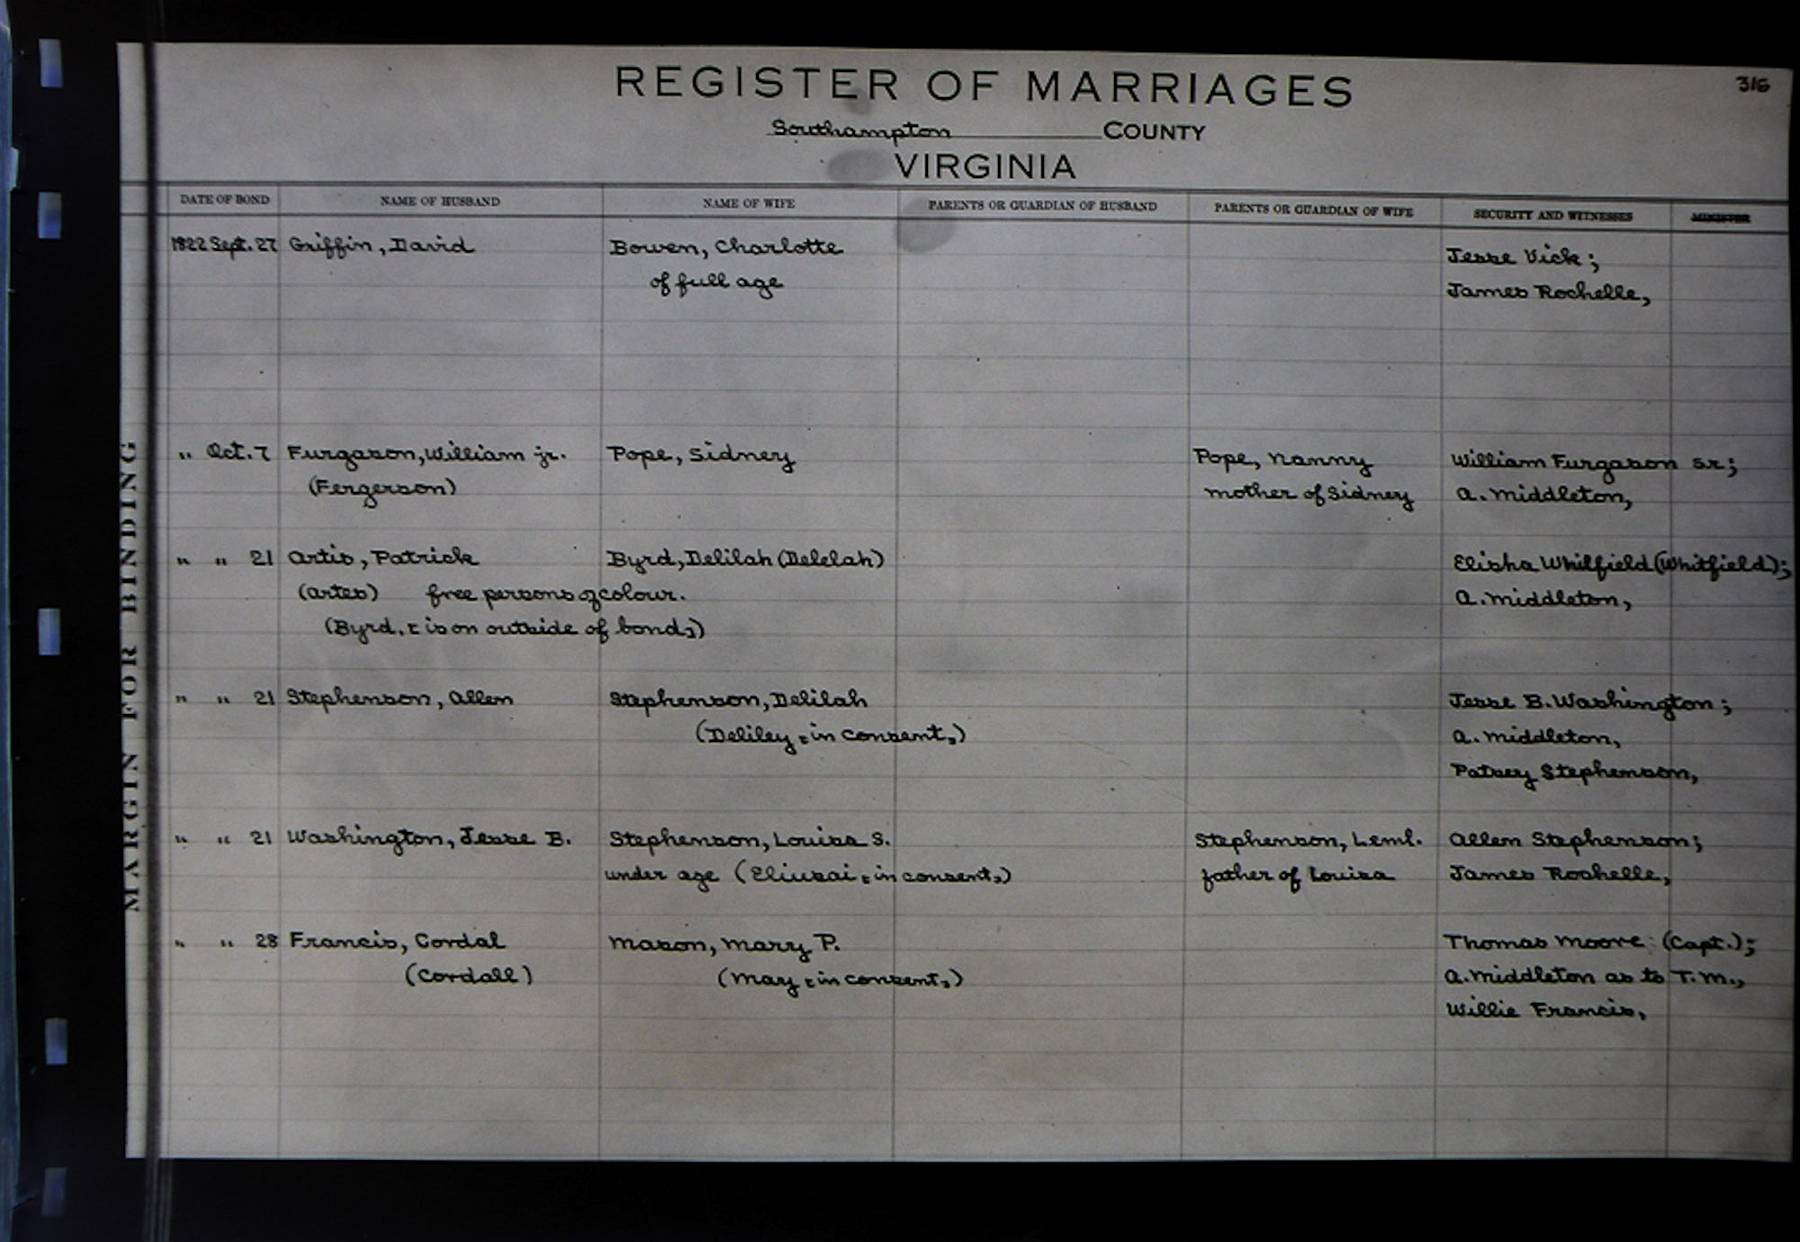 316
REGISTER OF MARRIAGES
Southampton COUNTY
VIRGINIA
DATE OF BOND NAME OF HUSBAND NAME OF WIFE PARENTS OR GUARDIAN OF HUSBAND PARENTS OR GUARDIAN OF WIFE SECURITY AND WITNESSES MINISTER
1822 Sept. 27 Griffin, David Bowen, Charlotte Jesse Vick;
of full age James Rochelle,
" Oct. 7 Furgason, William jr. Pope, Sidney Pope, Nanny William Furgason sr;
(Fergerson) mother of Sidney A. Middleton,
" " 21 Artis, Patrick Byrd, Delilah (Delelah) Elisha Whilfield (Whitfield);
(Artes) free persons of colour. A. Middleton,
(Byrd, [is on outside of bond,])
" " 21 Stephenson, Allen Stephenson, Delilah Jesse B. Washington;
(Deliley, [in consent,]) A. Middleton,
Patsey Stephenson,
" " 21 Washington, Jesse B. Stephenson, Louisa S. Stephenson, Leml. Allen Stephenson;
under age (Eliusai, [in consent,]) father of Louisa James Rochelle,
" " 28 Francis, Cordal Mason, Mary P. Thomas Moore (Capt.);
(Cordall) (May, [in consent,]) A. Middleton as to T. M.,
Willie Francis,
MARGIN FOR BINDING